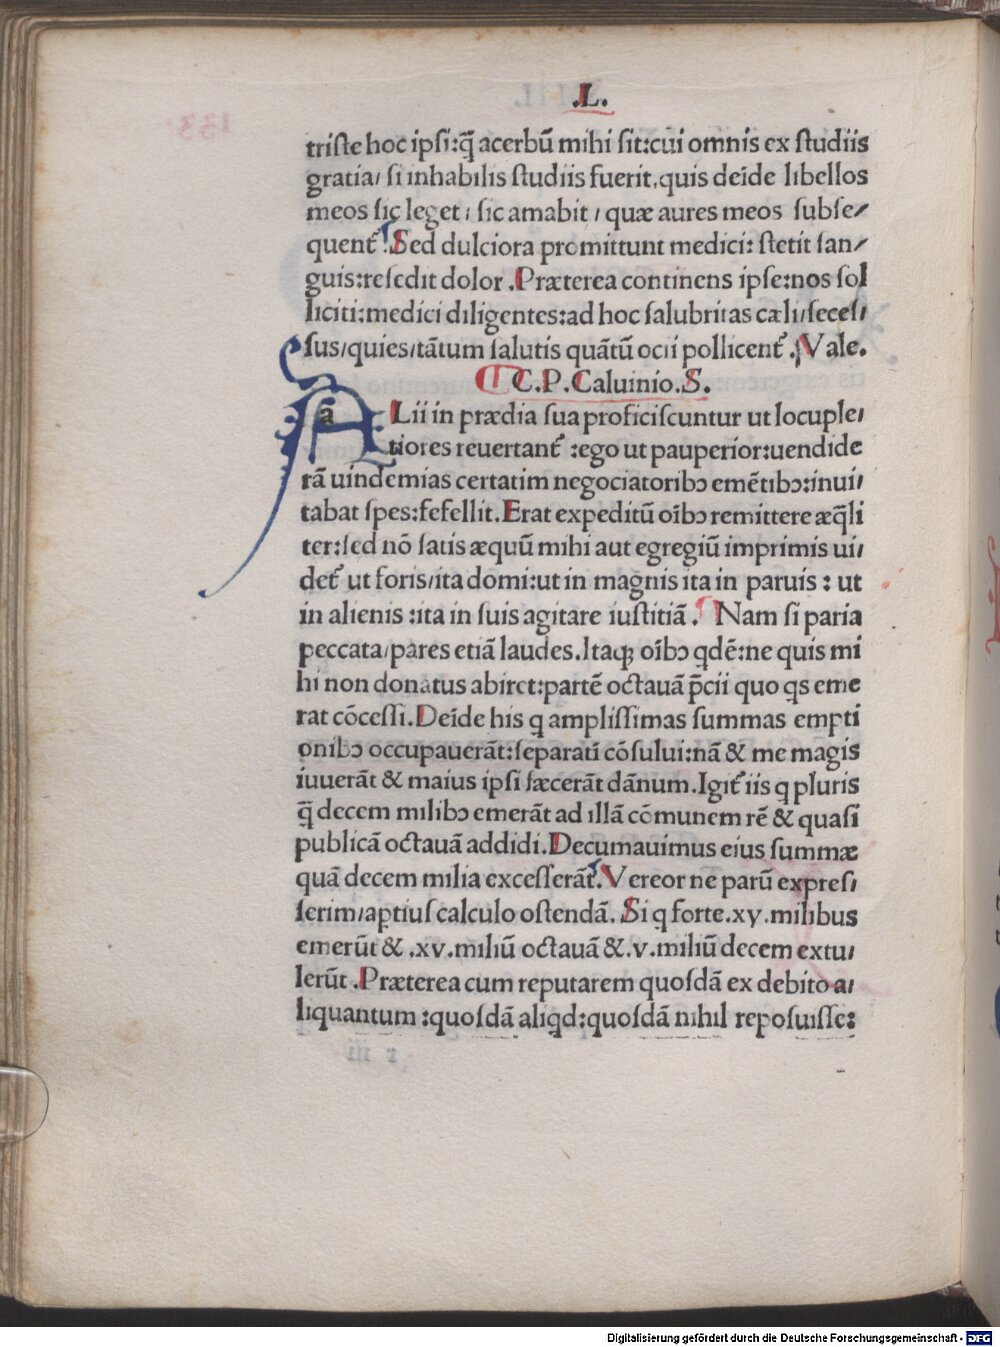 .L.
triste hoc ipsi:q̃ acerbũ mihi sit:cui omnis ex studiis
gratia/ si inhabilis studiis fuerit.quis deĩde libellos
meos sic leget / sic amabit / quæ aures meos subse/
quent᷑! Sed dulciora promittunt medici: stetit san/
guis:resedit dolor .Præterea continens ipse:nos sol
liciti:medici diligentes:ad hoc salubritas cæli/seces/
sus/quies/tãtum salutis quãtũ ocii pollicent᷑ . Vale.
C.P.Caluinio.S.
a Lii in prædia sua proficiscuntur ut locuple/
tiores reuertant᷑ :ego ut pauperior:uendide
rã uindemias certatim negociatoribꝰ emẽtibꝰ:inui/
tabat spes:fefellit.Erat expeditũ oĩbꝰ remittere æq̃li
ter:sed nõ satis æquũ mihi aut egregiũ imprimis ui/
det᷑ ut foris/ita domi:ut in magnis ita in paruis : ut
in alienis :ita in suis agitare iustitiã . Nam si paria
peccata/pares etiã laudes.Itaqꝫ oĩbꝰ qdẽ:ne quis mi
hi non donatus abiret:partẽ octauã p̃cii quo qs eme
rat cõcessi.Deĩde his q amplissimas summas empti
onibꝰ occupauerãt:separatĩ cõsului:nã & me magis
iuuerãt & maius ipsi fæcerãt dãnum.Igit᷑ iis q pluris
q̃ decem milibꝰ emerãt ad illã cõmunem rẽ & quasi
publicã octauã addidi.Decumauimus eius summæ
quã decem milia excesserãt.Vereor ne parũ expres/
serim/aptius calculo ostendã. Si q forte.xy.milibus
emerũt & .xv.miliũ octauã &.v.miliũ decem extu/
lerũt .Præterea cum reputarem quosdã ex debito a/
liquantum :quosdã aliqd:quosdã nihil reposuisse:
Digitalisierung gefördert durch die Deutsche Forschungsgemeinschaft - DFG